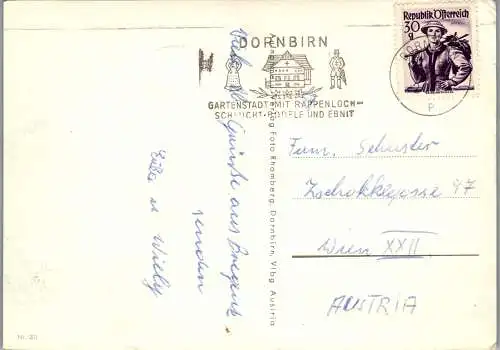 Republik Österreich
30
g
DORNBIRN
GARTENSTADT MIT RAPPENLOCH-
SCHLUCHT-BÖDELE UND EBNIT
P
Viele Grüße aus Bregenz
senden
Erika u Willy
Foto Rhomberg, Dornbirn, Vlbg Austria
Fam. Schuster
Zschokkegasse 47
Wien XXII
AUSTRIA